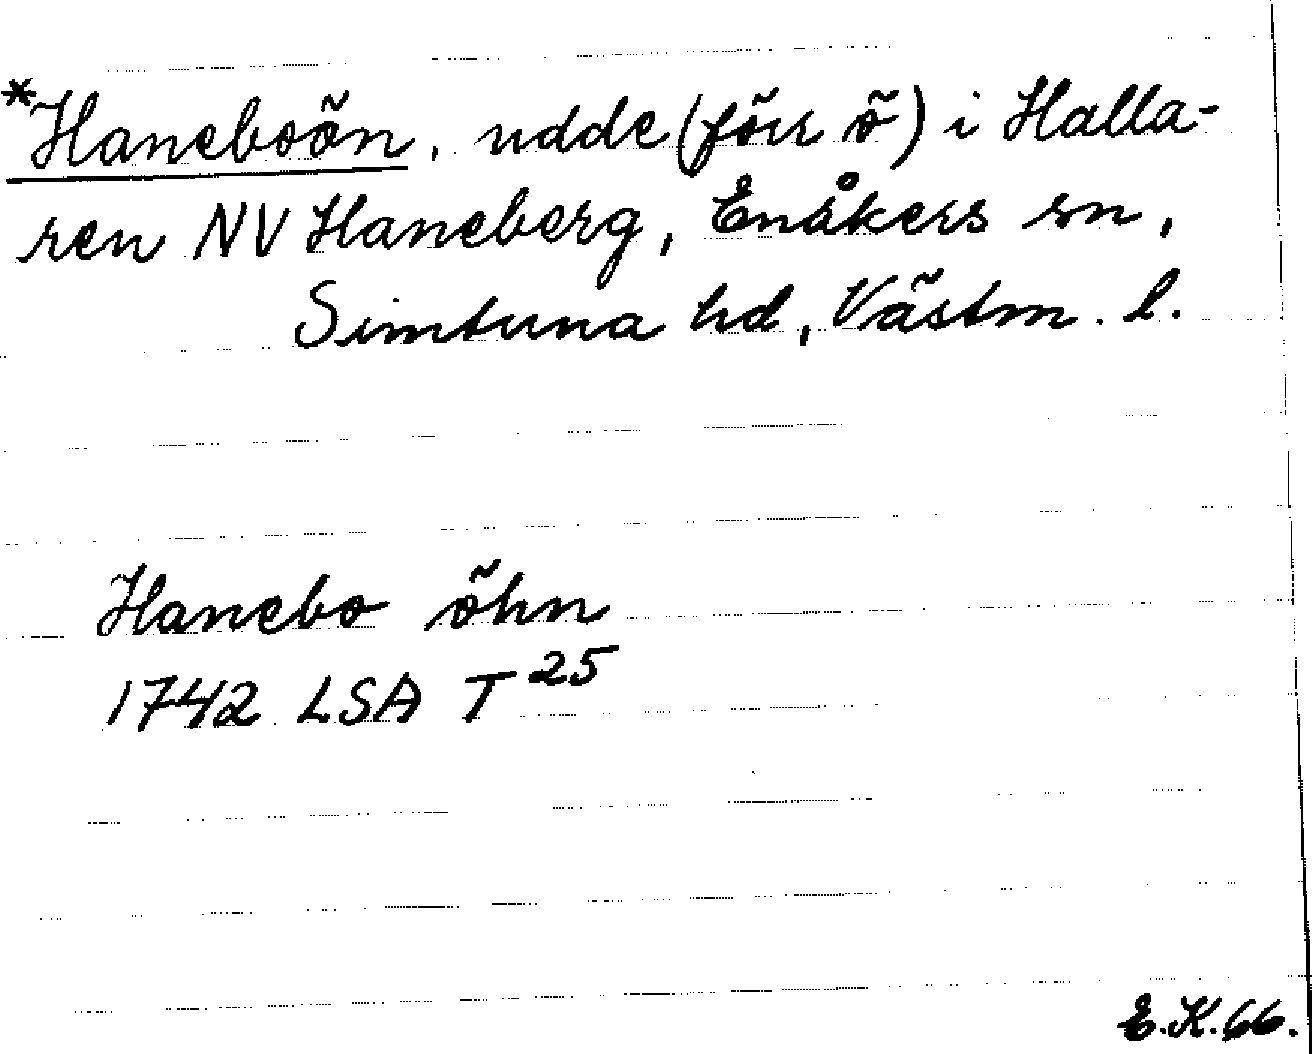 *Haneboön, udde (förr ö) i Halla-
ren NV Haneberg, Enåkers sn,
Simtuna hd, Västm. l.
Hanebo öhn
1742 LSA T 25
E.K.66.